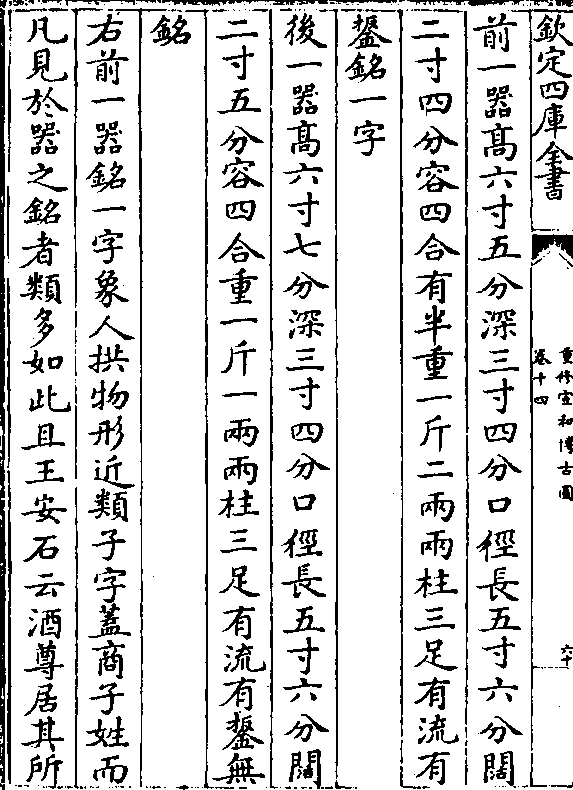 欽定四庫全書
重修宣和博古圖
卷十四
六十
前一器髙六寸五分深三寸四分口徑長五寸六分闊
二寸四分容四合有半重一斤二兩兩柱三足有流有
鋬銘一字
後一器髙六寸七分深三寸四分口徑長五寸六分闊
二寸五分容四合重一斤一兩兩柱三足有流有鋬無
銘
右前一器銘一字象人拱物形近類子字蓋商子姓而
凡見於器之銘者類多如此且王安石云酒尊居其所